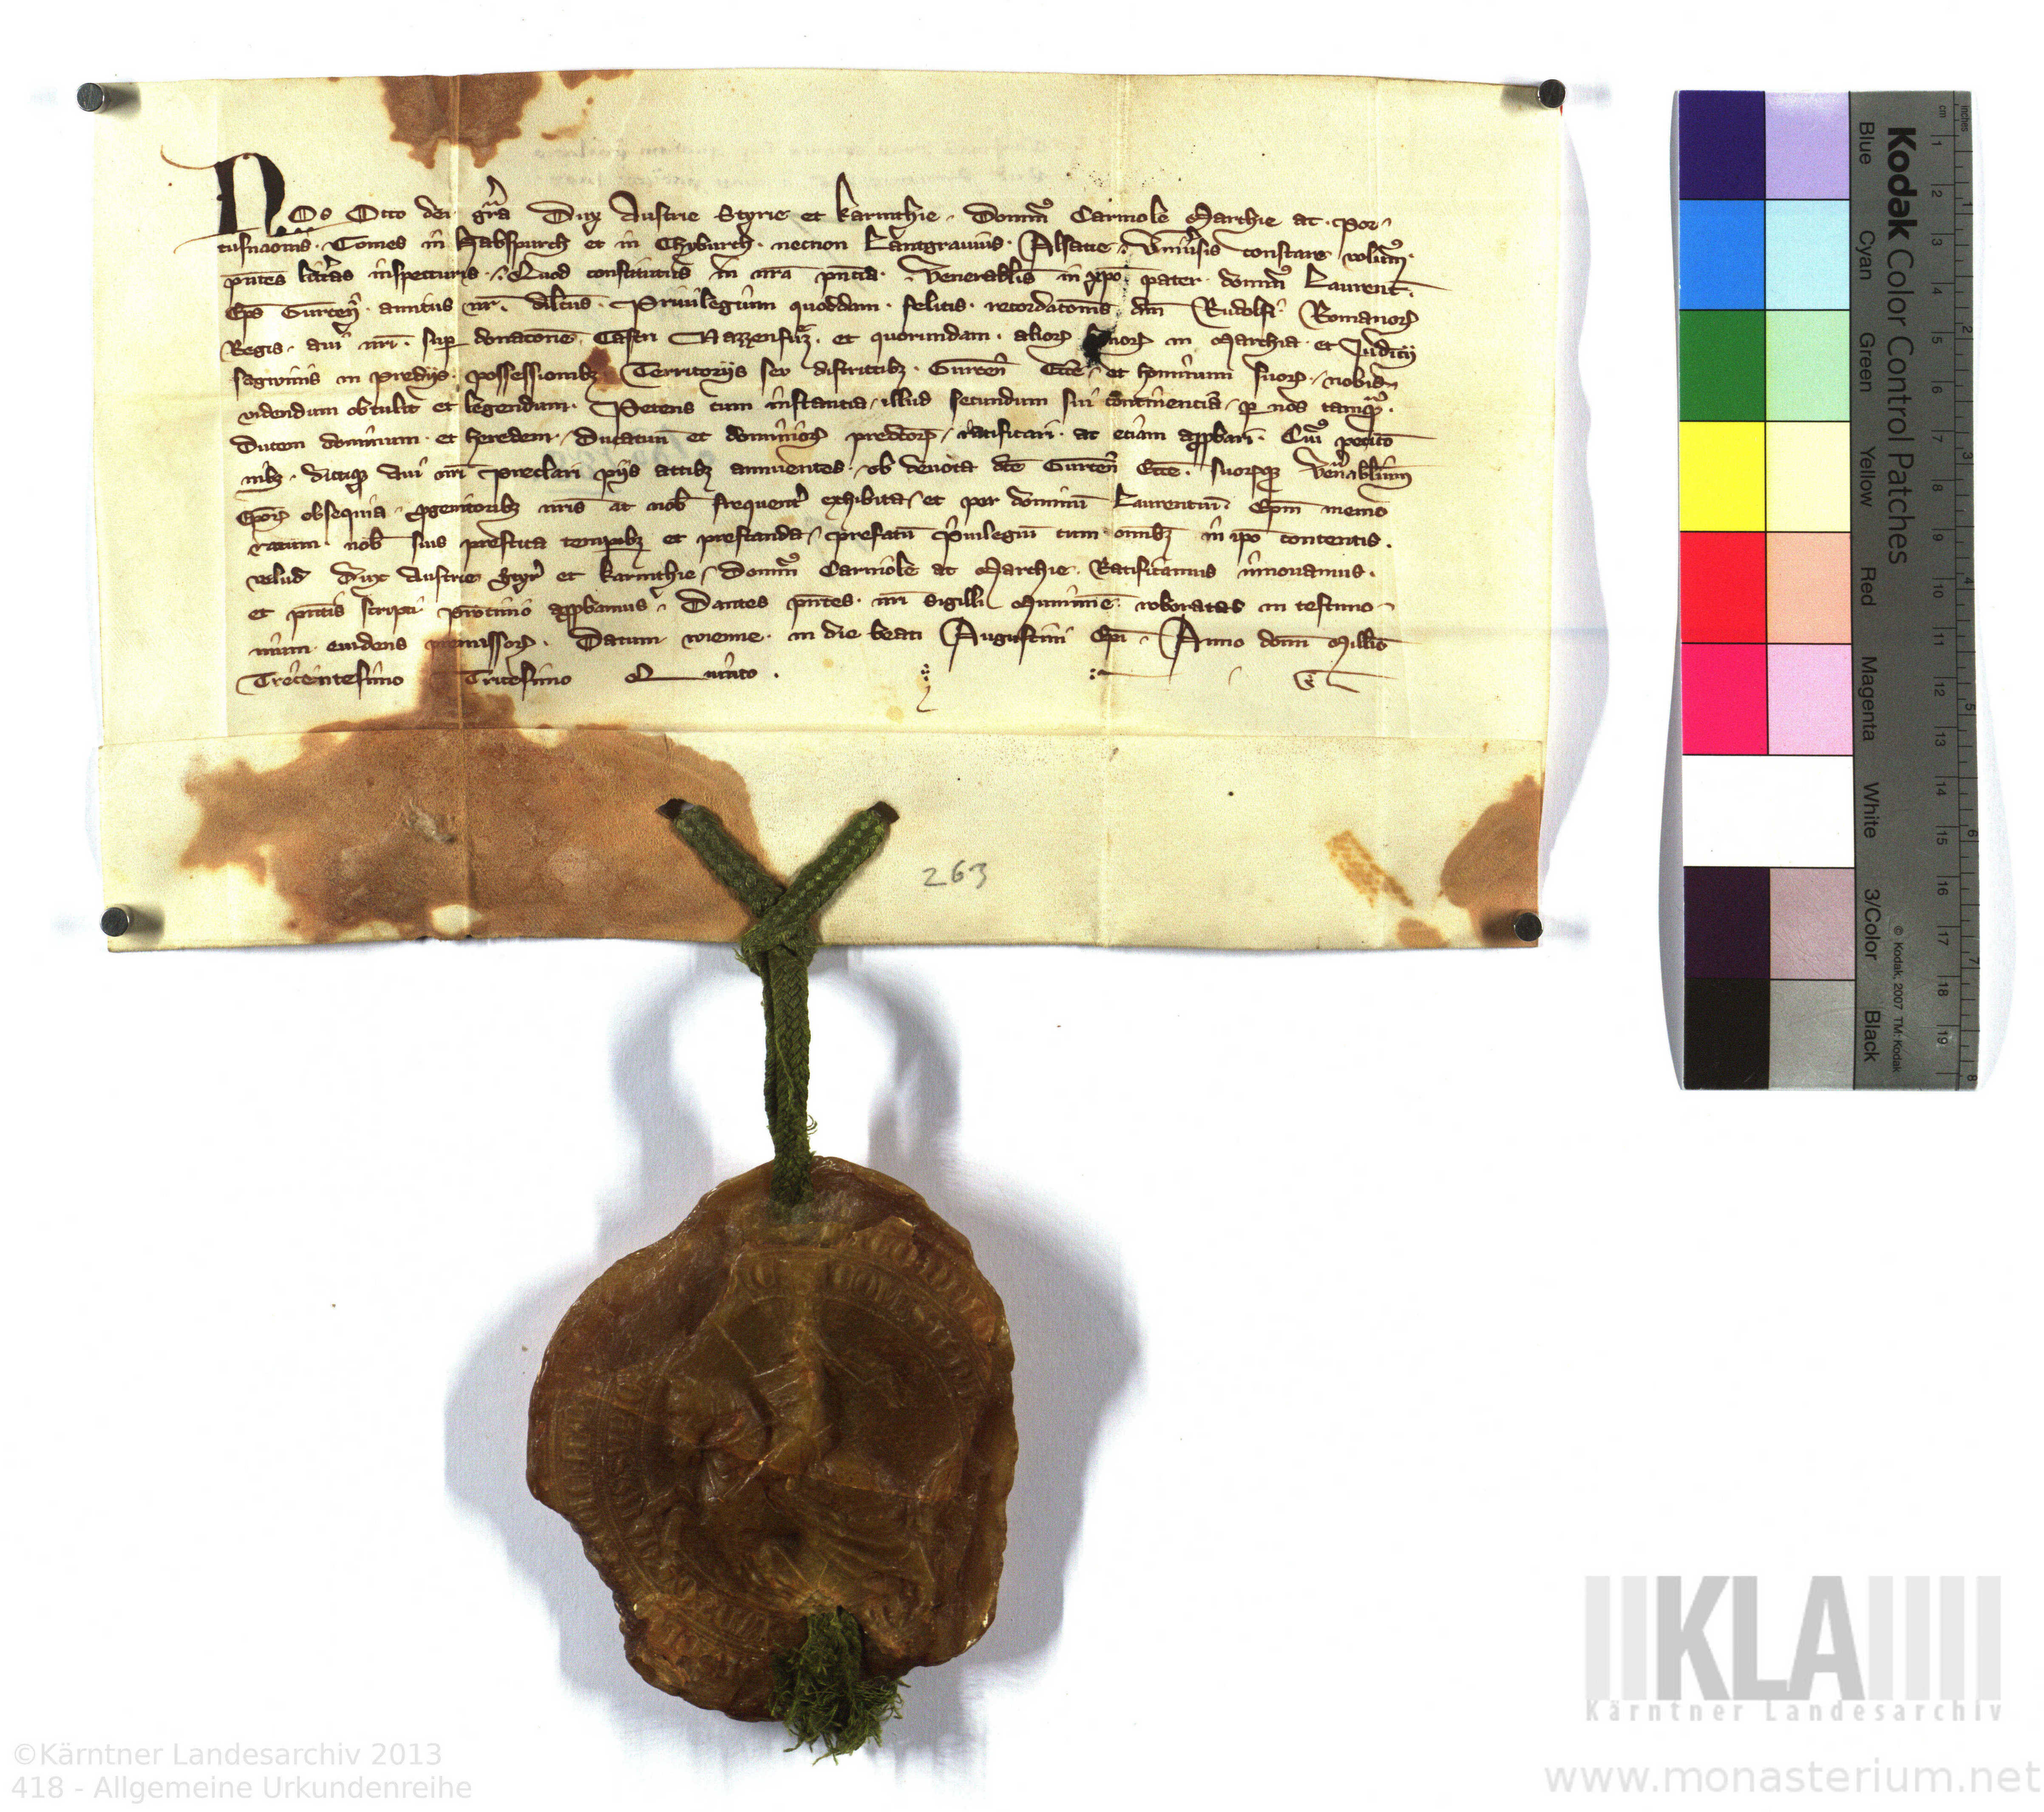 Nos Otto dei gr̄a Dux Austrie Styrie et Karinthie . Domin9 Carniole Marchie ac . Por-
tusnaonis . Comes in Habspurch et in Chyburch . necnon Lantgrauius . Alsatie . Vniu̓sis constare volum9 .
p̄ntes litt̓as inspecturis . Quod constitutus in nr̄a p̄ntia . Venerabil̄is in xp̄o pater domin9 Laurent̄ .
Ep̄s Gurceñ . amicus nr̄ . dil̄cus . Priuilegium quoddam . felicis . recordac̄onis dn̄i Rudolfi . Romanoꝝ
Regis . aui nr̄i . sup̱ donac̄one Castri Nazzenfuͦz . et quorundam . alioꝝ bonoꝝ in Marchia et Judicij
sagwinis in predijs . possessionibꝫ Territorijs seu districtibꝫ . Gurceñ Ecc̄e . et hominum suoꝝ . nobis
videndum obtulit et legendum . Petens cum instantia . illud secundum sui continenciā . ꝑ nos tamq̄ᵃ .
Ducem dominum . et heredem . Ducatuū et dominioꝝ predc̄oꝝ . ratificari . ac etiam app̱bari . Cui9 petic̄o
nibꝫ . dictiqꝫ aui nr̄i preclari pijs actibꝫ annuentes . ob deuota dc̄e Gurceñ Ecc̄e . suoꝝqꝫ Ven̓abilium
Ep̄oꝝ obsequia . p̱genitoribꝫ nr̄is ac nob̄ frequent̓ exhibita . et per dominū Laurentiū . Ep̄m memo
ratum . nob̄ suis prestita temporibꝫ et prestanda . prefatū Pͥuilegiū cum om̄ibꝫ in ip̄o contentis .
velud Dux Austrie Styr̓ et Karinthie . Domin9 Carniole ac Marchie . Ratificamus innouamus .
et p̄ntis scripti pat̓cinio app̱bamus . Dantes p̄ntes . nr̄i sigilli Munimīe . roboratas in testimo-
nium . euidens premissoꝝ . Datum wienne . in die beati Augustini Ep̄i . Anno domī Mill̄io
Trecentesimo Tricesimo Quinto .
263
Kodak Color Control Patches
Blue Cyan Green Yellow Red Magenta White 3/Color Black
© Kodak, 2007 TM: Kodak
inches 1 2 3 4 5 6 7 8
cm 1 2 3 4 5 6 7 8 9 10 11 12 13 14 15 16 17 18 19
KLA
Kärntner Landesarchiv
©Kärntner Landesarchiv 2013
418 - Allgemeine Urkundenreihe
www.monasterium.net